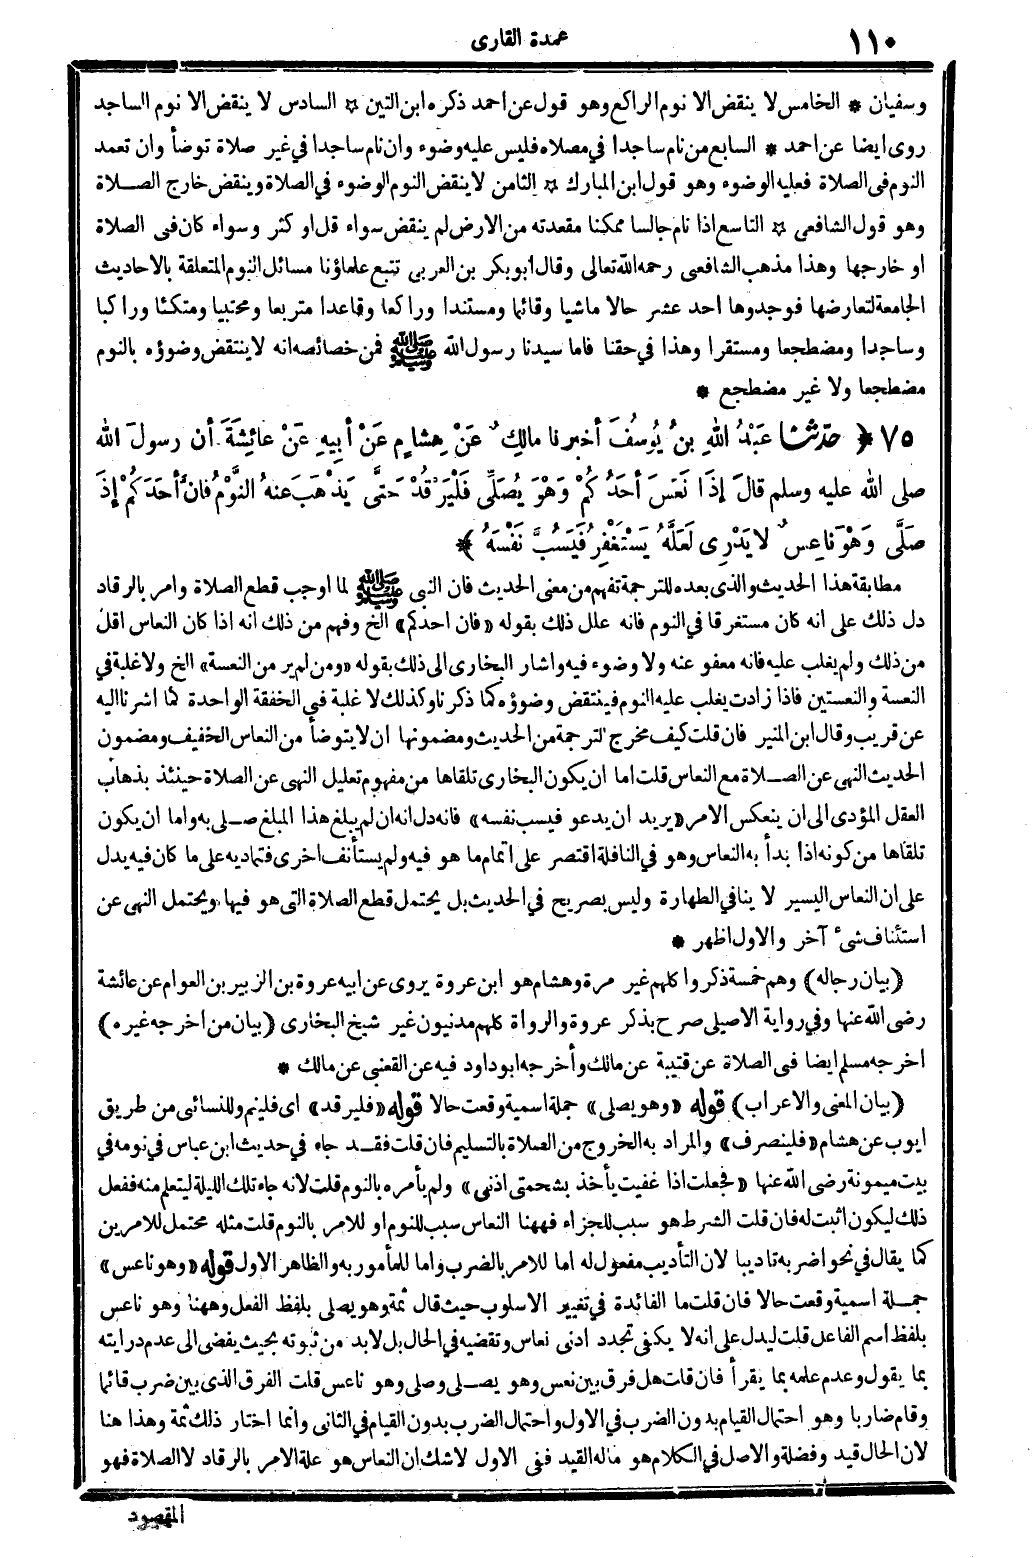 ١١٠
عمدة القارى
وسفيان * الخامس لا ينقض الا نوم الراكع وهو قول عن احمد ذكره ابن التين * السادس لا ينقض الا نوم الساجد
روى ايضا عن احمد * السابع من نام ساجدا في مصلاه فليس عليه وضوء وان نام ساجدا في غير صلاة توضأ وان تعمد
النوم فى الصلاة فعليه الوضوء وهو قول ابن المبارك * الثامن لا ينقض النوم الوضوء في الصلاة وينقض خارج الصلاة
وهو قول الشافعى * التاسع اذا نام جالسا ممكنا مقعدته من الارض لم ينقض سواء قل او كثر وسواء كان فى الصلاة
او خارجها وهذا مذهب الشافعى رحمه الله تعالى وقال ابو بكر بن العربى تتبع علماؤنا مسائل النوم المتعلقة بالاحاديث
الجامعة لتعارضها فوجدوها احد عشر حالا ماشيا وقائما ومستندا وراكعا وقاعدا متربعا ومحتبيا ومتكئا وراكبا
وساجدا ومضطجعا ومستقرا وهذا في حقنا فاما سيدنا رسول الله ﷺ فمن خصائصه انه لا ينتقض وضوؤه بالنوم
مضطجعا ولا غير مضطجع *
٧٥ ﴿ حدثنا عَبْدُ اللهِ بنُ يُوسُفَ أخبرنا مالِكٌ عَنْ هِشامٍ عَنْ أَبِيهِ عَنْ عائِشَةَ أن رسولَ الله
صلى الله عليه وسلم قالَ إذَا نَعَسَ أحَدُكُمْ وَهْوَ يُصَلِّي فَلْيَرْقُدْ حَتَّى يَذْهَبَ عنهُ النَّوْمُ فانَّ أحَدَكُمْ إذَ
صَلَّى وَهْوَ ناعِسٌ لا يَدْرِى لَعَلَّهُ يَسْتَغْفِرُ فَيَسُبَّ نَفْسَهُ ﴾ *
مطابقة هذا الحديث والذى بعده للترجمة تفهم من معنى الحديث فان النبى ﷺ لما اوجب قطع الصلاة وامر بالرقاد
دل ذلك على انه كان مستغرقا في النوم فانه علل ذلك بقوله «فان احدكم» الخ وفهم من ذلك انه اذا كان النعاس اقل
من ذلك ولم يغلب عليه فانه معفو عنه ولا وضوء فيه واشار البخارى الى ذلك بقوله «ومن لم ير من النعسة» الخ ولا غلبة في
النعسة والنعستين فاذا زادت يغلب عليه النوم فينتقض وضوؤه كما ذكرنا وكذلك لا غلبة فى الخفقة الواحدة كما اشرنا اليه
عن قريب وقال ابن المنير فان قلت كيف مخرج الترجمة من الحديث ومضمونها ان لا يتوضأ من النعاس الخفيف ومضمون
الحديث النهى عن الصلاة مع النعاس قلت اما ان يكون البخارى تلقاها من مفهوم تعليل النهى عن الصلاة حينئذ بذهاب
العقل المؤدى الى ان ينعكس الامر «يريد ان يدعو فيسب نفسه» فانه دل انه ان لم يبلغ هذا المبلغ صلى به واما ان يكون
تلقاها من كونه اذا بدأ به النعاس وهو في النافلة اقتصر على اتمام ما هو فيه ولم يستأنف اخرى فتماديه على ما كان فيه يدل
على ان النعاس اليسير لا ينافي الطهارة وليس بصريح في الحديث بل يحتمل قطع الصلاة التى هو فيها ويحتمل النهى عن
استئناف شىء آخر والاول اظهر *
(بيان رجاله) وهم خمسة ذكروا كلهم غير مرة وهشام هو ابن عروة يروى عن ابيه عروة بن الزبير بن العوام عن عائشة
رضى الله عنها وفي رواية الاصيلى صرح بذكر عروة والرواة كلهم مدنيون غير شيخ البخارى (بيان من اخرجه غيره)
اخرجه مسلم ايضا فى الصلاة عن قتيبة عن مالك وأخرجه ابو داود فيه عن القعنبى عن مالك *
(بيان المعنى والاعراب) قوله «وهو يصلى» جملة اسمية وقعت حالا قوله «فليرقد» اى فلينم وللنسائى من طريق
ايوب عن هشام «فلينصرف» والمراد به الخروج من الصلاة بالتسليم فان قلت فقد جاء في حديث ابن عباس في نومه في
بيت ميمونة رضى الله عنها «فجعلت اذا غفيت يأخذ بشحمتى اذنى» ولم يأمره بالنوم قلت لانه جاء تلك الليلة ليتعلم منه ففعل
ذلك ليكون اثبت له فان قلت الشرط هو سبب للجزاء فههنا النعاس سبب للنوم او للامر بالنوم قلت مثله محتمل للامرين
كما يقال في نحو اضربه تاديبا لان التأديب مفعول له اما للامر بالضرب واما للمأمور به والظاهر الاول قوله «وهو ناعس»
جملة اسمية وقعت حالا فان قلت ما الفائدة في تغيير الاسلوب حيث قال ثمة وهو يصلى بلفظ الفعل وههنا وهو ناعس
بلفظ اسم الفاعل قلت ليدل على انه لا يكفى تجدد ادنى نعاس وتقضيه في الحال بل لابد من ثبوته بحيث يفضى الى عدم درايته
بما يقول وعدم علمه بما يقرأ فان قلت هل فرق بين نعس وهو يصلى وصلى وهو ناعس قلت الفرق الذى بين ضرب قائما
وقام ضاربا وهو احتمال القيام بدون الضرب في الاول واحتمال الضرب بدون القيام في الثانى وانما اختار ذلك ثمة وهذا هنا
لان الحال قيد وفضلة والاصل في الكلام هو ماله القيد ففى الاول لاشك ان النعاس هو علة الامر بالرقاد لا الصلاة فهو
المقصود